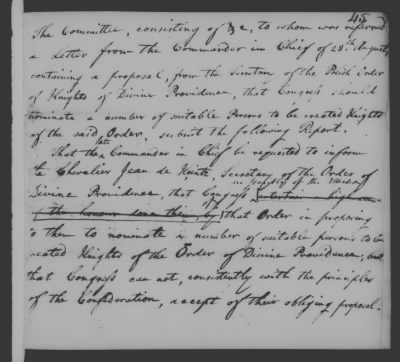 45
The Committee, consisting of &c, to whom was referred
a Letter from the Commander in Chief of 28th August,
containing a proposal, from the Secretary of the Polish Order
of Knights of Divine Providence, that Congress should
nominate a number of suitable Persons to be created Knights
of the said Order, submit the following Report.
That the late Commander in Chief be requested to inform
the Chevalier Jean de Heintz, Secretary of the Order of
Divine Providence, that Congress are sensibly of the
the honour done them, by that Order in proposing
to them to nominate a number of suitable persons to be
created Knights of the Order of Divine Providence; but
that Congress can not, consistently with the principles
of the Confederation, accept of their obliging proposal.